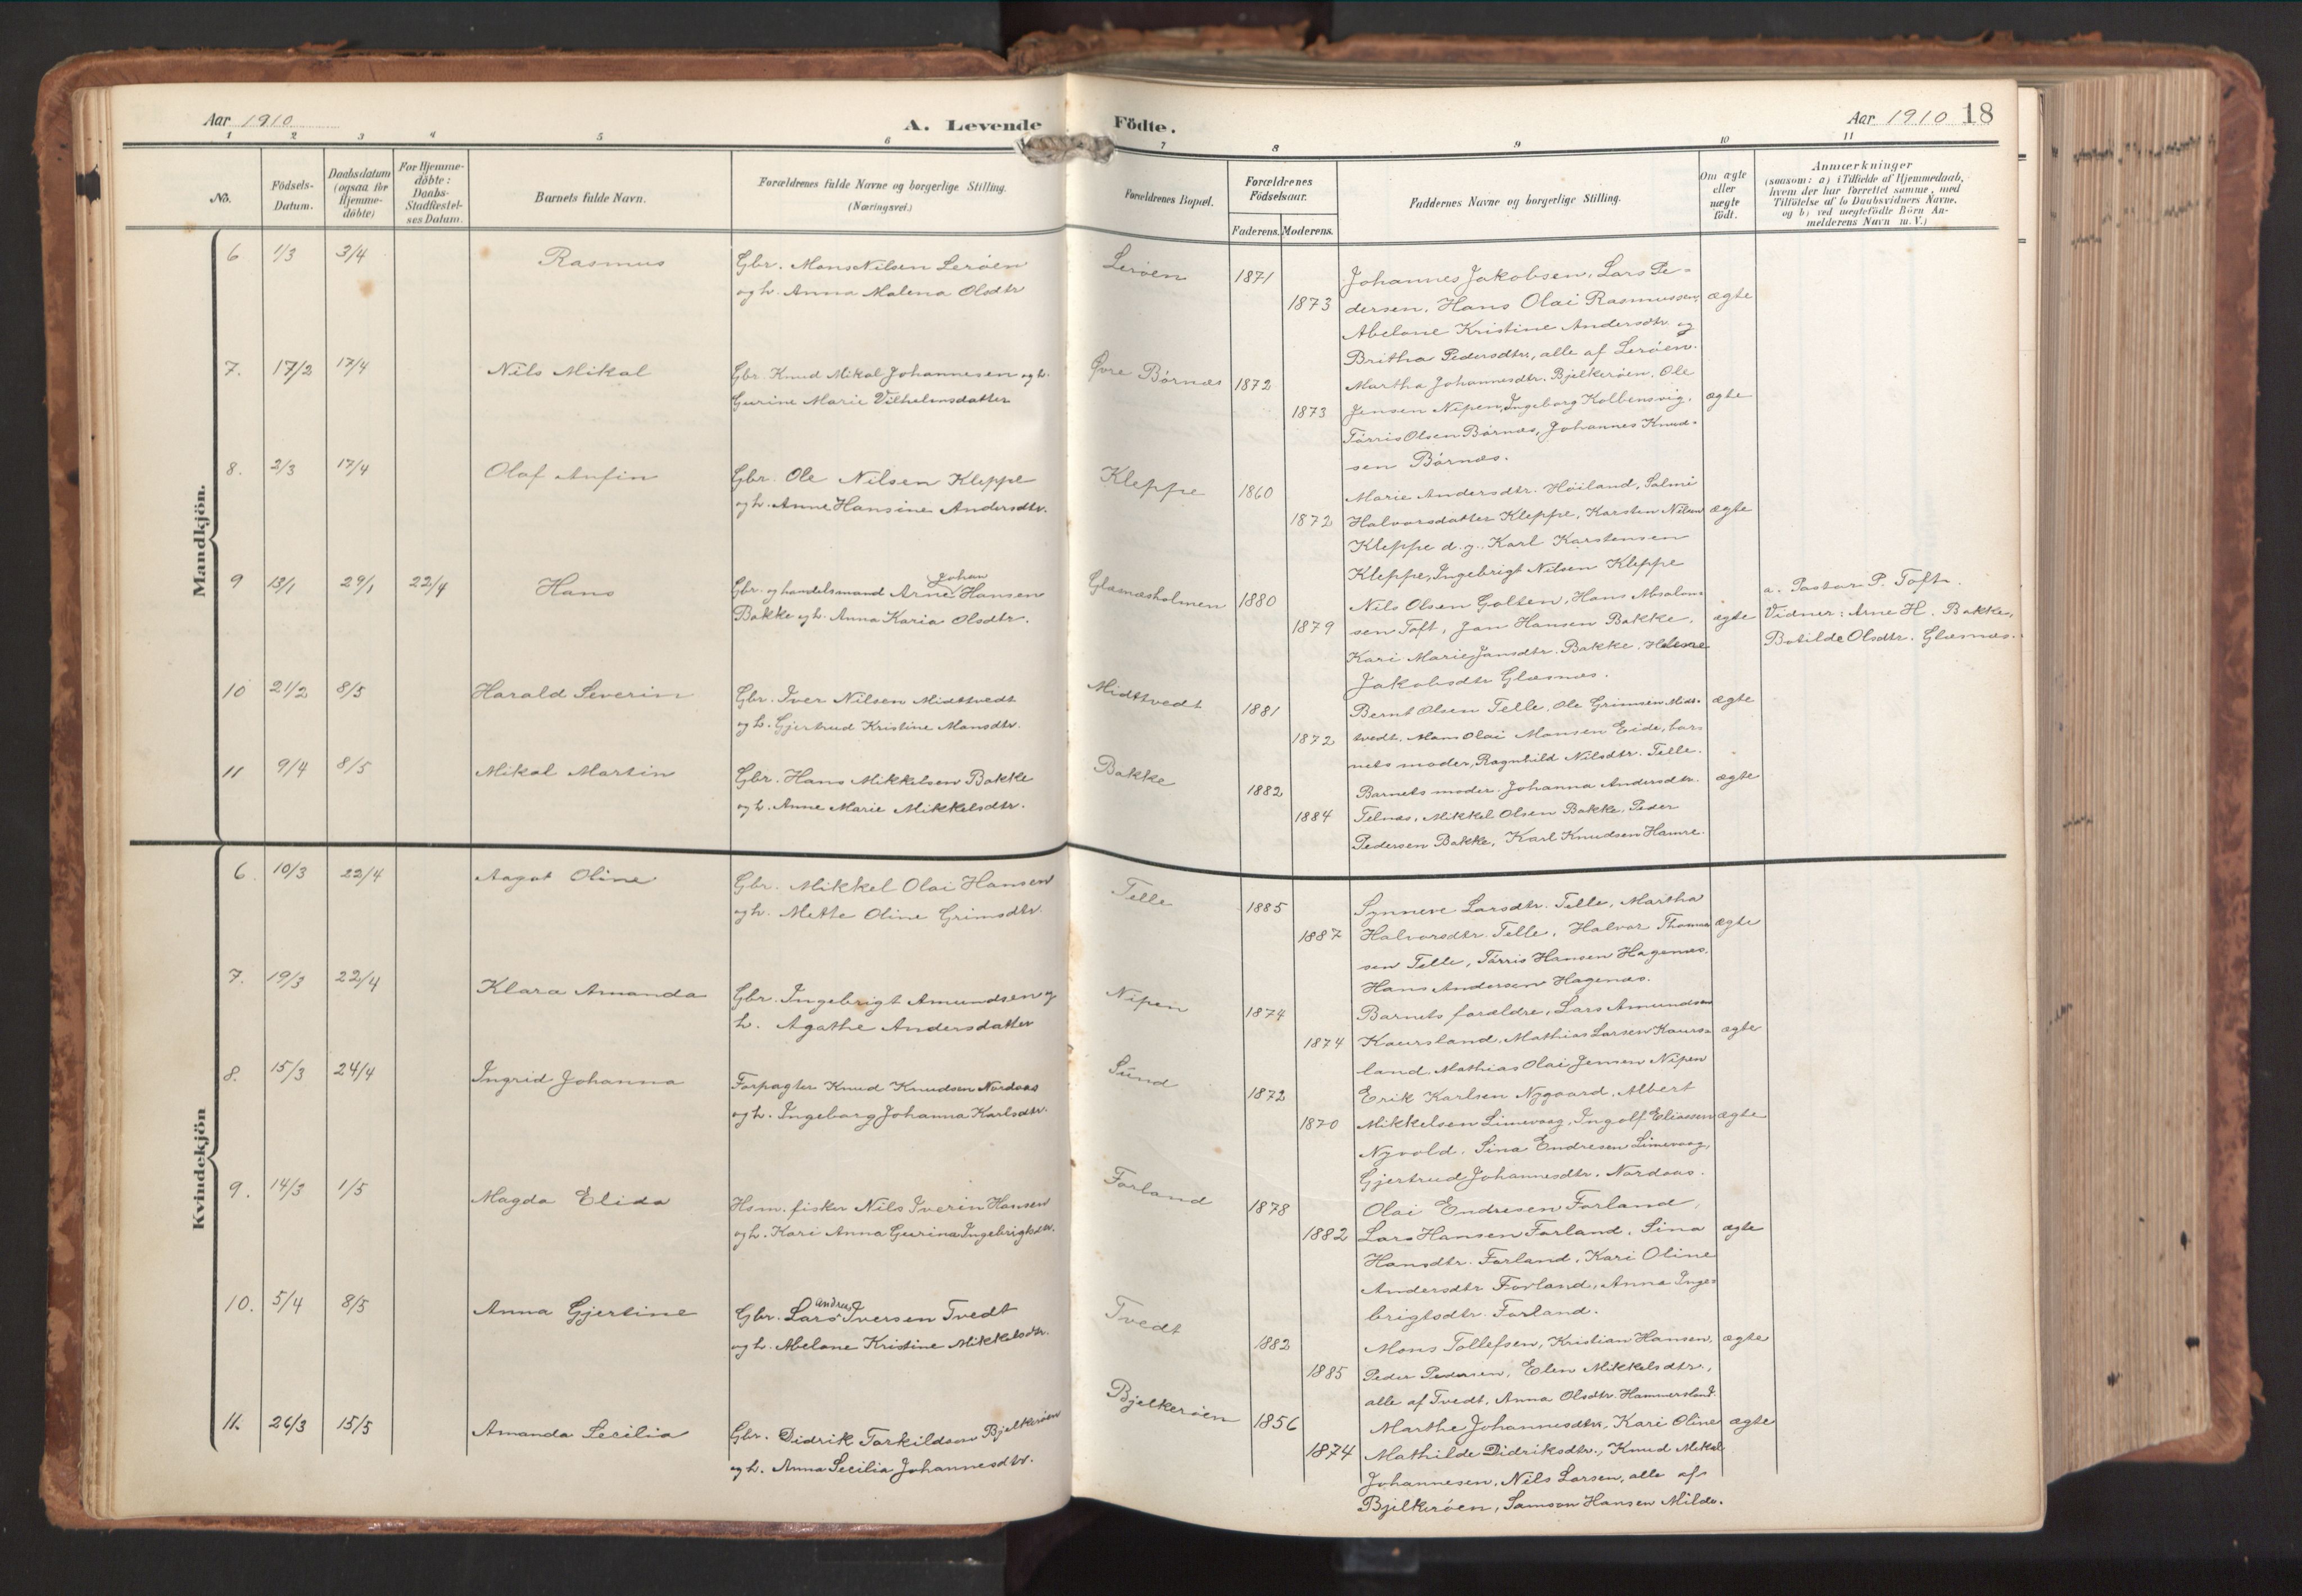 Aar 1910
A. Levende
Födte.
Aar 1910 18
1 2 3 4 5 6 7 8 9 10 11
No.
Födsels-Datum.
Daabsdatum (ogsaa for Hjemme-döbte)
For Hjemme-döbte: Daabs-Stadfæstel-ses Datum.
Barnets fulde Navn.
Forældrenes fulde Navne og borgerlige Stilling. (Næringsvei.)
Forældrenes Bopæl.
Forældrenes Födselsaar.
Faderens. Moderens.
Faddernes Navne og borgerlige Stilling.
Om ægte eller uægte födt.
Anmærkninger
(saasom: a) i Tilfælde af Hjemmedaab,
hvem der har forrettet samme, med
Tilföielse af to Daabsvidners Navne.
og b) ved uægtefödte Börn An-
melderens Navn m. V.)
Mandkjön.
6 1/3 3/4 Rasmus
Gbr. Mons Nilsen Leröen
og h. Anna Malena Olsdtr
Leröen 1871 1873
Johannes Jakobsen, Lars Pe-
dersen, Hans Olai Rasmussen, ægte
Abelone Kristine Andersdtr. og
Britha Pedersdtr, alle af Leröen.
7. 17/2 17/4 Nils Mikal
Gbr. Knud Mikal Johannesen og h.
Gurine Marie Vilhelmsdatter
Øvre Börnæs 1872 1873
Martha Johannesdtr. Bjelkeröen, Ole
Jensen Nipen, Ingeborg Kolbensvig, ægte
Törris Olsen Börnæs, Johannes Knud-
sen Börnæs.
8. 2/3 17/4 Olaf Anfin
Gbr. Ole Nilsen Kleppe
og h. Anne Hansine Andersdtr.
Kleppe 1860 1872
Marie Andersdtr. Höiland, Salmi
Halvorsdatter Kleppe, Karsten Nilsen ægte
Kleppe d. y. Karl Karstensen
Kleppe, Ingebrigt Nilsen Kleppe
9 13/1 29/1 22/4 Hans
Johan
Gbr. og handelsmand Arne Hansen
Bakke og h. Anna Karia Olsdtr.
Glæsnæsholmen 1880 1879
Nils Olsen Golten, Hans Absalon-
sen Toft, Jan Hansen Bakke, ægte
Kari Marie Jansdtr. Bakke, Helene
Jakobsdtr Glæsnæs.
a. Pastor P. Toft.
Vidner: Arne H. Bakke,
Botilde Olsdtr. Glæsnæs.
10 21/2 8/5 Harald Severin
Gbr. Iver Nilsen Midttvedt
og h. Gjertrud Kristine Monsdtr.
Midttvedt 1881 1872
Bernt Olsen Telle, Ole Grimsen Midt- ægte
tvedt, Mons Olai Monsen Eide, bar-
nets moder, Ragnhild Nilsdtr. Telle.
11 9/4 8/5 Mikal Martin
Gbr. Hans Mikkelsen Bakke
og h. Anne Marie Mikkelsdtr.
Bakke 1882 1884
Barnets moder. Johanna Andersdtr. ægte
Telnæs, Mikkel Olsen Bakke, Peder
Pedersen Bakke, Karl Knudsen Hamre.
Kvindekjön
6. 10/3 22/4 Aagot Oline
Gbr. Mikkel Olai Hansen
og h. Mette Oline Grimsdtr.
Telle 1885 1887
Synneve Larsdtr. Telle, Martha
Halvorsdtr. Telle, Halvor Thomas- ægte
sen Telle, Törris Hansen Hagenæs.
Hans Andersen Hagenæs.
7. 19/3 22/4 Klara Amanda
Gbr. Ingebrigt Amundsen og
h. Agathe Andersdatter
Nipen 1874 1874
Barnets forældre, Lars Amundsen
Kaursland, Mathias Larsen Kaurs- ægte
land, Mathias Olai Jensen Nipen
8. 15/3 24/4 Ingrid Johanna
Forpagter Knud Knudsen Nordaas
og h. Ingeborg Johanna Karlsdtr.
Sund 1872 1870
Erik Karlsen Nygaard, Albert
Mikkelsen Limevaag, Ingolf Eliassen ægte
Nyvold, Sina Endresen Limevaag,
Gjertrud Johannesdtr. Nordaas.
9. 14/3 1/5 Magda Elida
Hsm. fisker Nils Iverin Hansen
og h. Kari Anna Gurina Ingebrigtsdtr.
Forland 1878 1882
Olai Endresen Forland,
Lars Hansen Forland, Sina ægte
Hansdtr. Forland, Kari Oline
Andersdtr Forland, Anna Inge-
brigtsdtr. Forland.
10. 5/4 8/5 Anna Gjertine
Andreas
Gbr. Lars Iversen Tvedt
og h. Abelone Kristine Mikkelsdtr.
Tvedt 1882 1885
Mons Tollefsen, Kristian Hansen, ægte
Peder Pedersen, Elen Mikkelsdtr.,
alle af Tvedt, Anna Olsdtr. Hammersland.
11. 26/3 15/5 Amanda Secilia
Gbr. Didrik Torkildsen Bjelkeröen
og h. Anna Secilia Johannesdtr.
Bjelkeröen 1856 1874
Marthe Johannesdtr, Kari Oline ægte
Mathilde Didriksdtr., Knud Mikal
Johannesen, Nils Larsen, alle af
Bjelkeröen, Samson Hansen Milde.